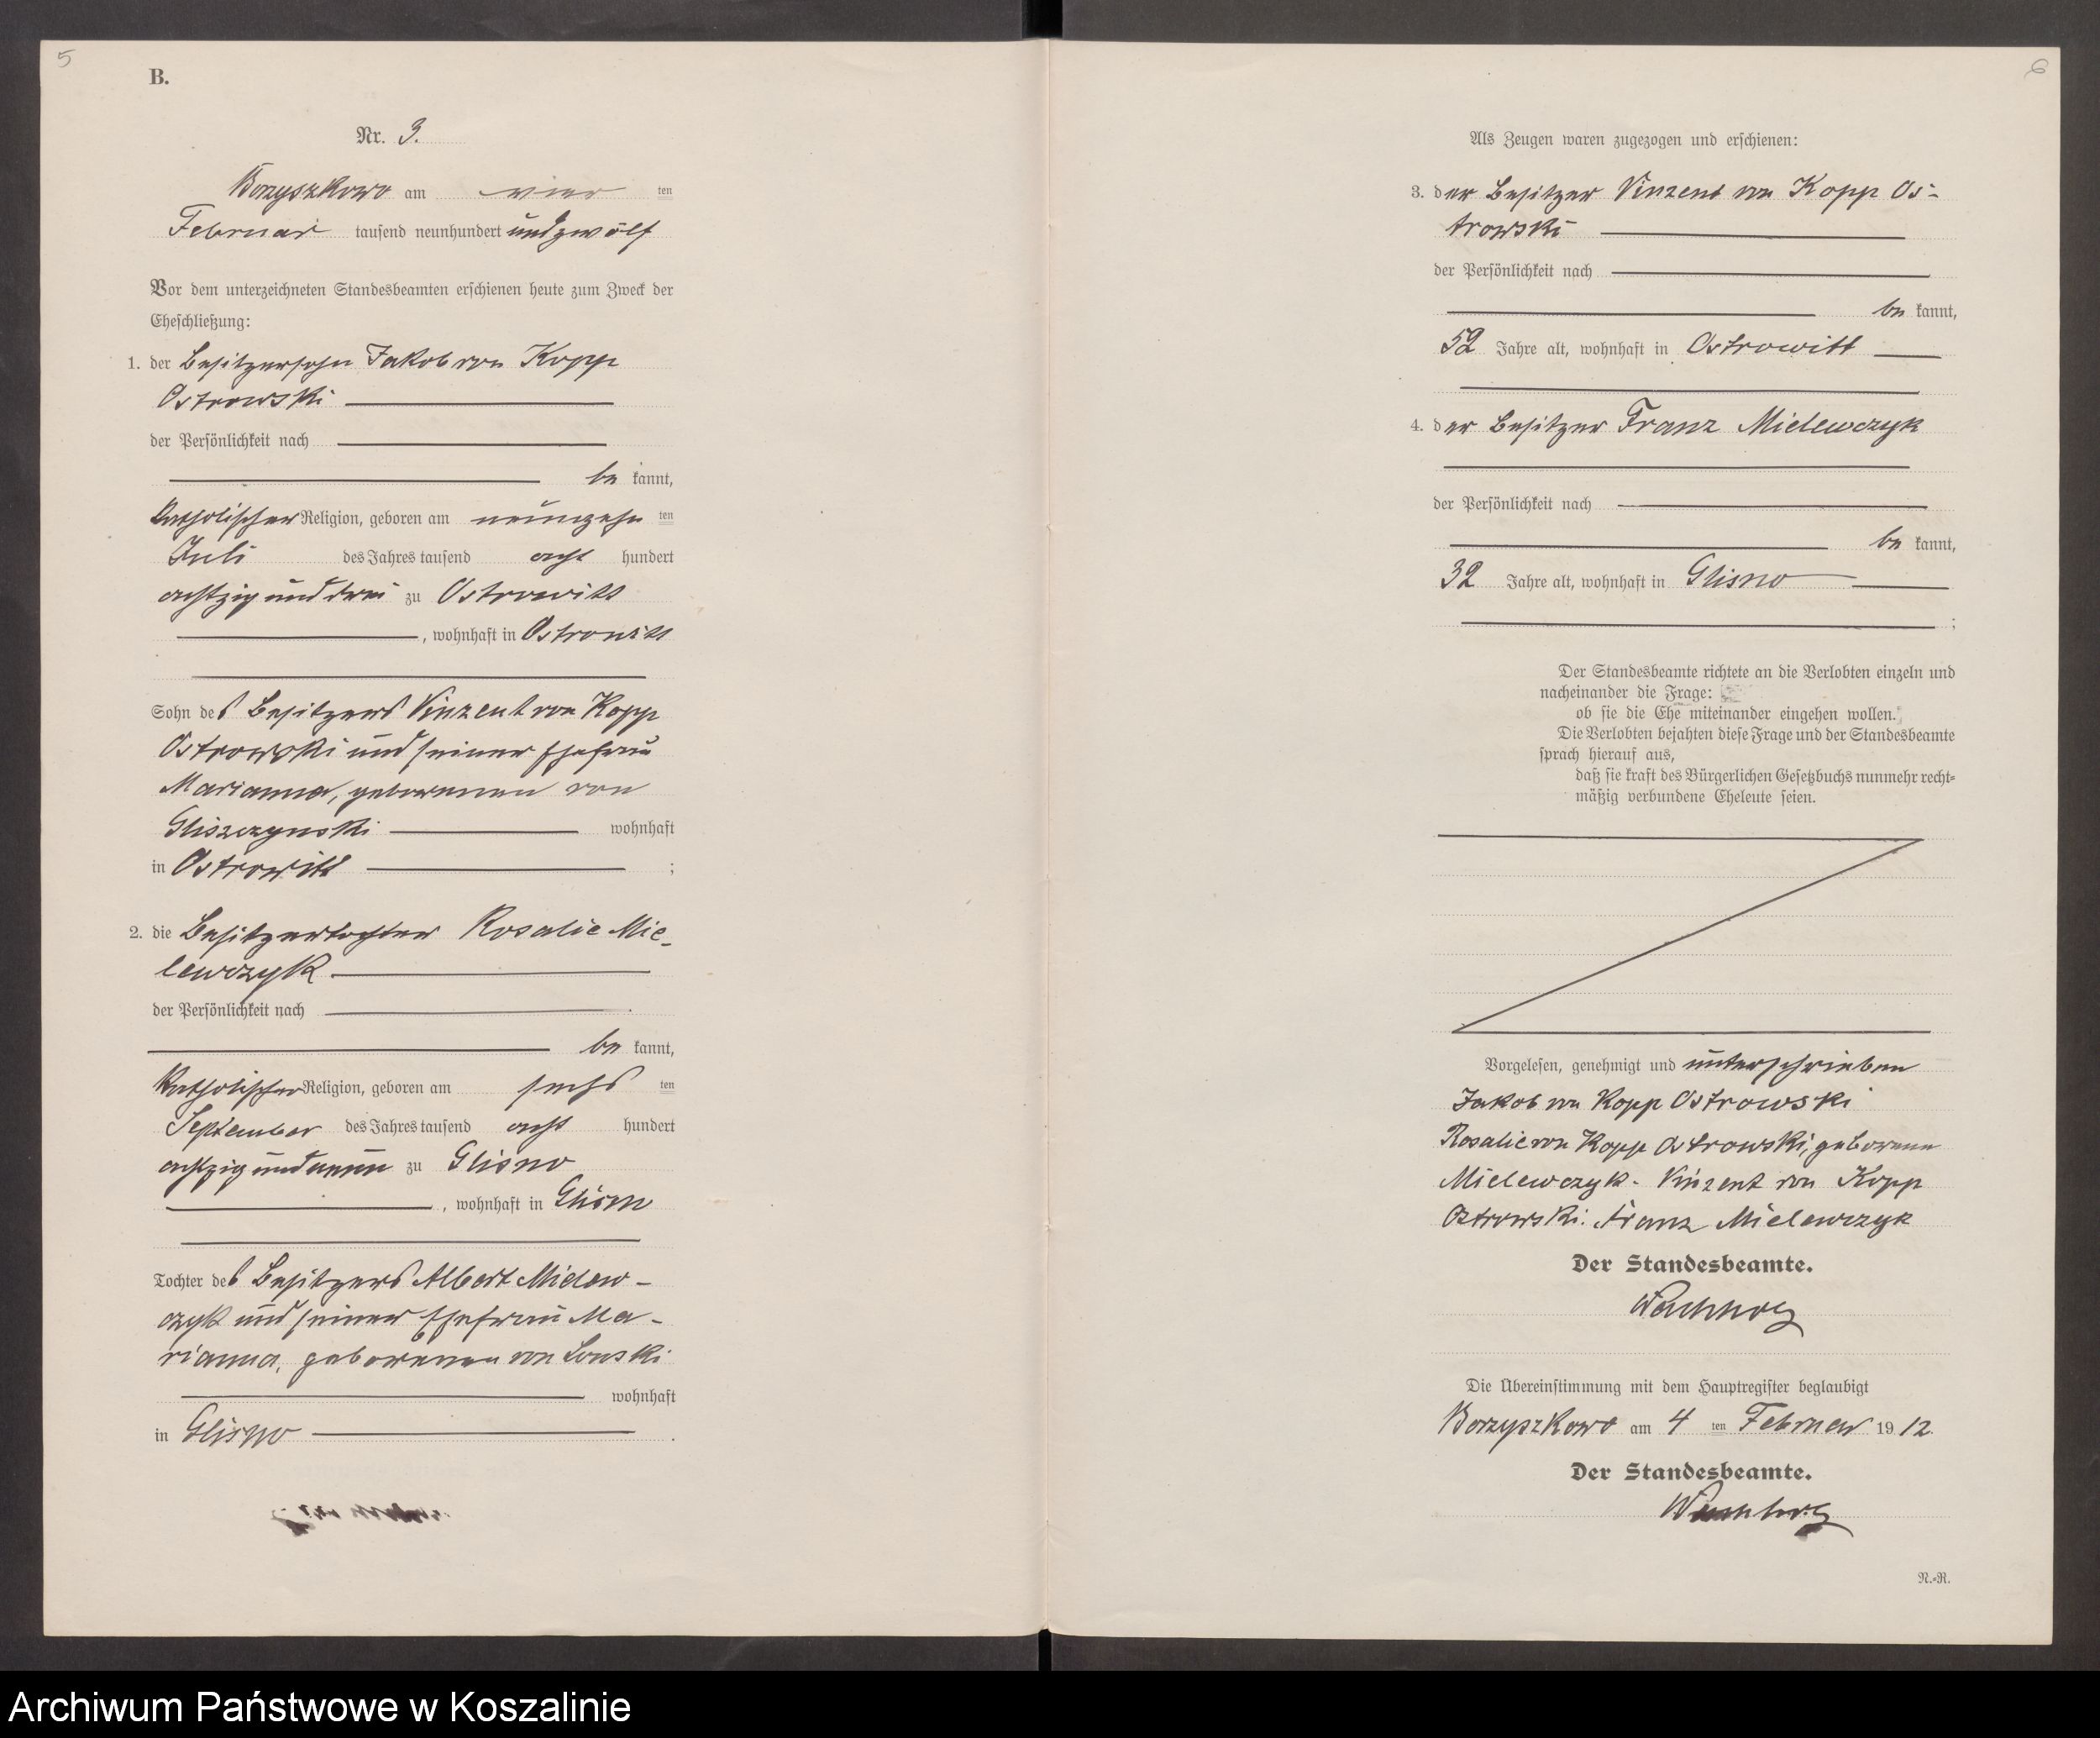 5
6
B.
Nr. 3.
Borzyszkowo am vier ten
Februar tausend neunhundert und zwölf
Vor dem unterzeichneten Standesbeamten erschienen heute zum Zweck der
Eheschließung:
1. der Besitzersohn Jakob von Kopp
Ostrowski
der Persönlichkeit nach
be kannt,
katholischer Religion, geboren am neunzehn ten
Juli des Jahres tausend acht hundert
achtzig und drei zu Ostrowitt
, wohnhaft in Ostrowitt
Sohn des Besitzers Vinzent von Kopp
Ostrowski und seiner Ehefrau
Marianna, geborenen von
Gliszczynski wohnhaft
in Ostrowitt ;
2. die Besitzertochter Rosalie Mie-
lewczyk
der Persönlichkeit nach
be kannt,
katholischer Religion, geboren am sechs ten
September des Jahres tausend acht hundert
achtzig und neun zu Glisno
, wohnhaft in Glisno
Tochter des Besitzers Albert Mielew-
czyk und seiner Ehefrau Ma-
rianna, geborenen von Lonski
wohnhaft
in Glisno .
Als Zeugen waren zugezogen und erschienen:
3. der Besitzer Vinzent von Kopp Os-
trowski
der Persönlichkeit nach
be kannt,
52 Jahre alt, wohnhaft in Ostrowitt
4. der Besitzer Franz Mielewczyk
der Persönlichkeit nach
be kannt,
32 Jahre alt, wohnhaft in Glisno
;
Der Standesbeamte richtete an die Verlobten einzeln und
nacheinander die Frage:
ob sie die Ehe miteinander eingehen wollen.
Die Verlobten bejahten diese Frage und der Standesbeamte
sprach hierauf aus,
daß sie kraft des Bürgerlichen Gesetzbuchs nunmehr recht-
mäßig verbundene Eheleute seien.
Vorgelesen, genehmigt und unterschrieben
Jakob von Kopp Ostrowski
Rosalie von Kopp Ostrowski, geborene
Mielewczyk. Vinzent von Kopp
Ostrowski. Franz Mielewczyk
Der Standesbeamte.
Wachholz
Die Übereinstimmung mit dem Hauptregister beglaubigt
Borzyszkowo am 4 ten Februar 19 12.
Der Standesbeamte.
Wachholz
N.-R.
Archiwum Państwowe w Koszalinie